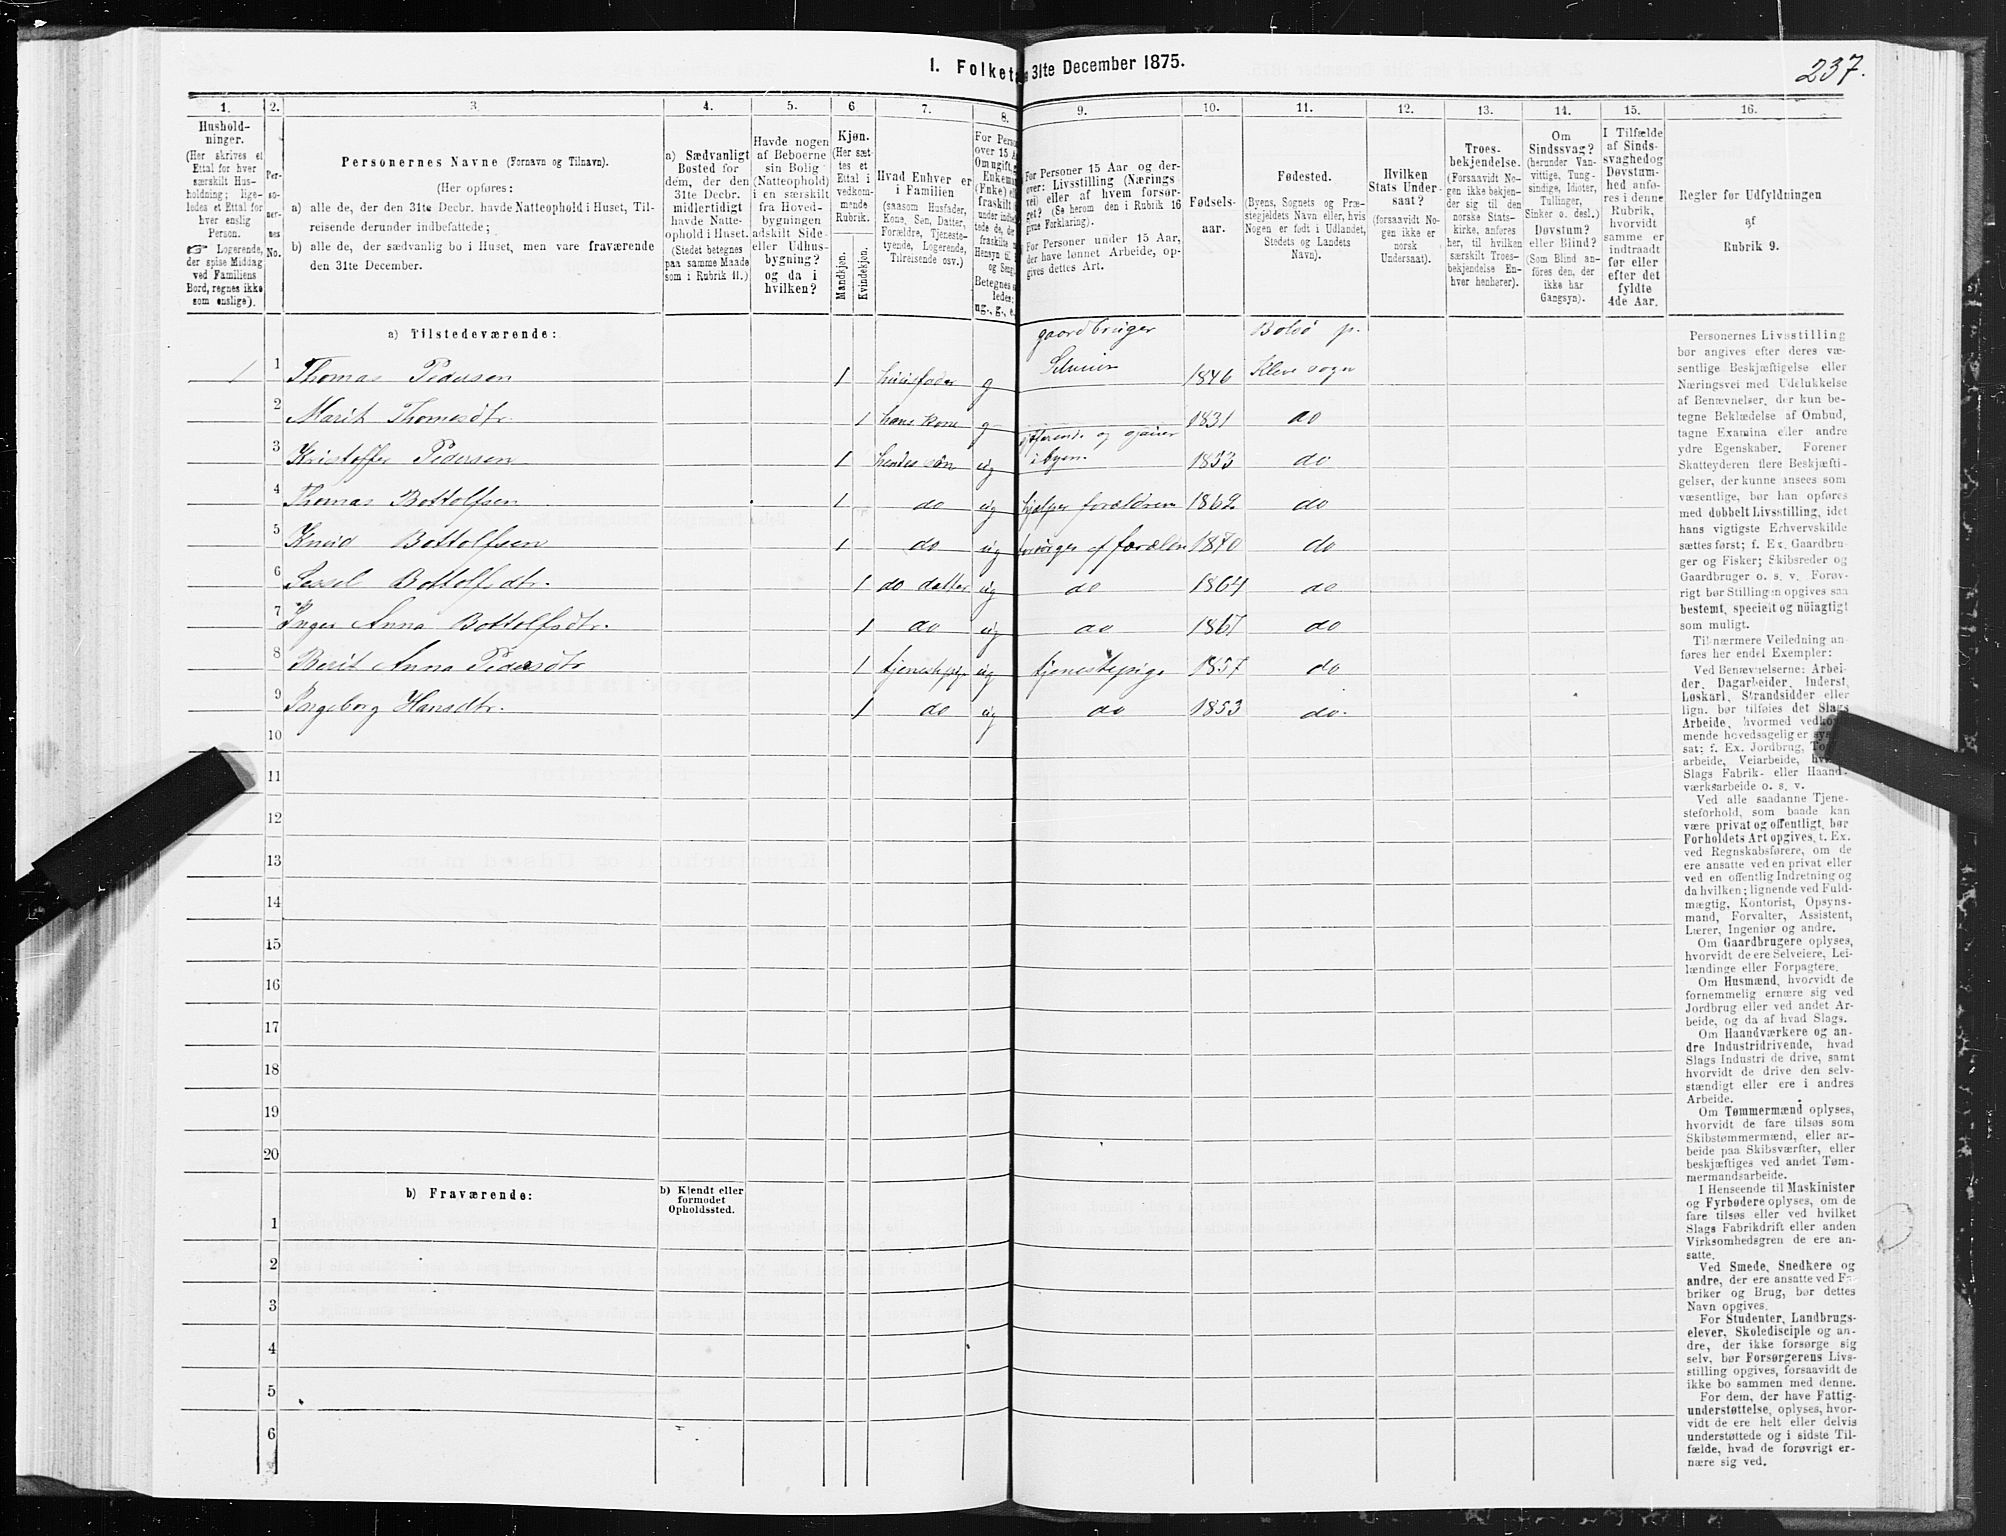 237.
I. Folketæ 31te December 1875.
1. 2. 3. 4. 5. 6 7. 8. 9. 10. 11. 12. 13. 14. 15. 16.
Hushold-
ninger.
(Her skrives et
Ettal for hver
særskilt Hus-
holdning; lige-
ledes et Ettal for
hver enslig
Person.
☞ Logerende,
der spise Middag
ved Familiens
Bord, regnes ikke
som enslige).
Per-
so-
ner-
nes
No.
Personernes Navne (Fornavn og Tilnavn).
(Her opføres:
a) alle de, der den 31te Decbr. havde Natteophold i Huset, Til-
reisende derunder indbefattede;
b) alle de, der sædvanlig bo i Huset, men vare fraværende
den 31te December.
a) Sædvanligt
Bosted for
dem, der den
31te Decbr.
midlertidigt
havde Natte-
ophold i Huset.
(Stedet betegnes
paa samme Maade
som i Rubrik 11.)
Havde nogen
af Beboerne
sin Bolig
(Natteophold)
i en særskilt
fra Hoved-
bygningen
adskilt Side-
eller Udhus-
bygning?
og da i
hvilken?
Kjøn.
(Her sæt-
tes et
Ettal i
vedkom-
mende
Rubrik.
Mandkjøn.
Kvindekjøn.
Hvad Enhver er
i Familien
(saasom Husfader,
Kone, Søn, Datter,
Forældre, Tjeneste-
tyende, Logerende,
Tilreisende osv.)
For Perso
over 15 A
Om ugift, g
Enkeman
(Enke) el
fraskilt
under indbe
tede de, de
fraskilte
Hensyn til
og Seng
Betegnes s
ledes:
ug., g., e.
For Personer 15 Aar og der-
over: Livsstilling (Nærings
vei) eller af hvem forsør-
get? (Se herom den i Rubrik 16
givne Forklaring).
For Personer under 15 Aar,
der have lønnet Arbeide, op-
gives dettes Art.
Fødsels-
aar.
Fødested.
(Byens, Sognets og Præ-
stegjeldets Navn eller, hvis
Nogen er født i Udlandet,
Stedets og Landets
Navn).
Hvilken
Stats Under-
saat?
(forsaavidt No-
gen ikke er
norsk
Undersaat).
Troes-
bekjendelse.
(Forsaavidt No-
gen ikke bekjen-
der sig til den
norske Stats-
kirke, anføres
her, til hvilken
særskilt Troes-
bekjendelse En-
hver henhører).
Om
Sindssvag?
(herunder Van-
vittige, Tung-
sindige, Idioter,
Tullinger,
Sinker o. desl.)
Døvstum?
eller Blind?
(Som Blind an-
føres den, der
ikke har
Gangsyn).
I Tilfælde
af Sinds-
svaghed og
Døvstum-
hed anfø-
res i denne
Rubrik,
hvorvidt
samme er
indtraadt
før eller
efter det
fyldte
4de Aar.
Regler for Udfyldningen
af
Rubrik 9.
a) Tilstedeværende:
gaardbruger Bolsø p.
1 1 Thomas Pedersen 1 huusfader g Selveier 1846 Kleve sogn
2 Marit Thomasdtr. 1 hans kone g 1831 do
3 Kristoffer Pedersen 1 hendes søn ug i byen. 1853 do
4 Thomas Bottolfsen 1 do ug hjælper forældren 1862 do
5 Knud Bottolfsen 1 do ug forsørges af forælden 1870 do
6 Sessel Bottolfsdtr. 1 do datter ug do 1864 do
7 Inger Anna Bottolfsdtr. 1 do ug do 1867 do
8 Berit Anna Pedersdtr 1 tjenestepige ug tjenestepige 1857 do
9 Ingeborg Hansdtr. 1 do ug do 1853 do.
10
11
12
13
14
15
16
17
18
19
20
b) Fraværende:
b) Kjendt eller
formodet
Opholdssted.
1
2
3
4
5
6
Personernes Livsstilling
bør angives efter deres væ-
sentlige Beskjæftigelse eller
Næringsvei med Udelukkelse
af Benævnelser, der kun be-
tegne Beklædelse af Ombud,
tagne Examina eller andre
ydre Egenskaber. Forener
Skatteyderen flere Beskjæfti-
gelser, der kunne ansees som
væsentlige, bør han opføres
med dobbelt Livsstilling, idet
hans vigtigste Erhvervskilde
sættes først; f. Ex. Gaardbru-
ger og Fisker; Skibsreder og
Gaardbruger o. s. v. Forøv-
rigt bør Stillingen opgives saa
bestemt, specielt og nøiagtigt
som muligt.
Til nærmere Veiledning an-
føres her endel Exempler:
Ved Benævnelserne: Arbei-
der, Dagarbeider, Inderst,
Løskarl, Strandsidder eller
lign. bør tilføies det Slags
Arbeide, hvormed vedkom-
mende hovedsagelig er sys
sat; f. Ex. Jordbrug, To
arbeide, Veiarbeide, hvi
Slags Fabrik- eller Haand-
værksarbeide o. s. v.
Ved alle saadanne Tjene-
steforhold, som baade kan
være privat og offentligt, bør
Forholdets Art opgives, t. Ex.
ved Regnskabsførere, om de
ere ansatte ved en privat eller
ved en offentlig Indretning og
da hvilken; lignende ved Fuld-
mægtig, Kontorist, Opsyns-
mand, Forvalter, Assistent,
Lærer, Ingeniør og andre.
Om Gaardbrugere oplyses,
hvorvidt de ere Selveiere, Lei-
lændinge eller Forpagtere.
Om Husmænd, hvorvidt de
fornemmelig ernære sig ved
Jordbrug eller ved andet Ar-
beide, og da af hvad Slags.
Om Haandværkere og an-
dre Industridrivende, hvad
Slags Industri de drive, samt
hvorvidt de drive den selv-
stændigt eller ere i andres
Arbeide.
Om Tømmermænd oplyses,
hvorvidt de fare tilsøs som
Skibstømmermænd, eller ar-
beide paa Skibsværfter, eller
beskjæftiges ved andet Tøm-
mermandsarbeide.
I Henseende til Maskinister
og Fyrbødere oplyses, om de
fare tilsøs eller ved hvilket
Slags Fabrikdrift eller anden
Virksomhedsgren de ere an-
satte.
Ved Smede, Snedkere og
andre, der ere ansatte ved Fa-
briker og Brug, bør dettes
Navn opgives.
For Studenter, Landbrugs-
elever, Skoledisciple og an-
dre, der ikke forsørge sig
selv, bør Forsørgerens Livs-
stilling opgives, forsaavidt de
ikke bo sammen med denne.
For dem, der have Fattig-
understøttelse, oplyses, hvor-
vidt de ere helt eller delvis
understøttede og i sidste Til-
fælde, hvad de forøvrigt er-
nære sig ved.